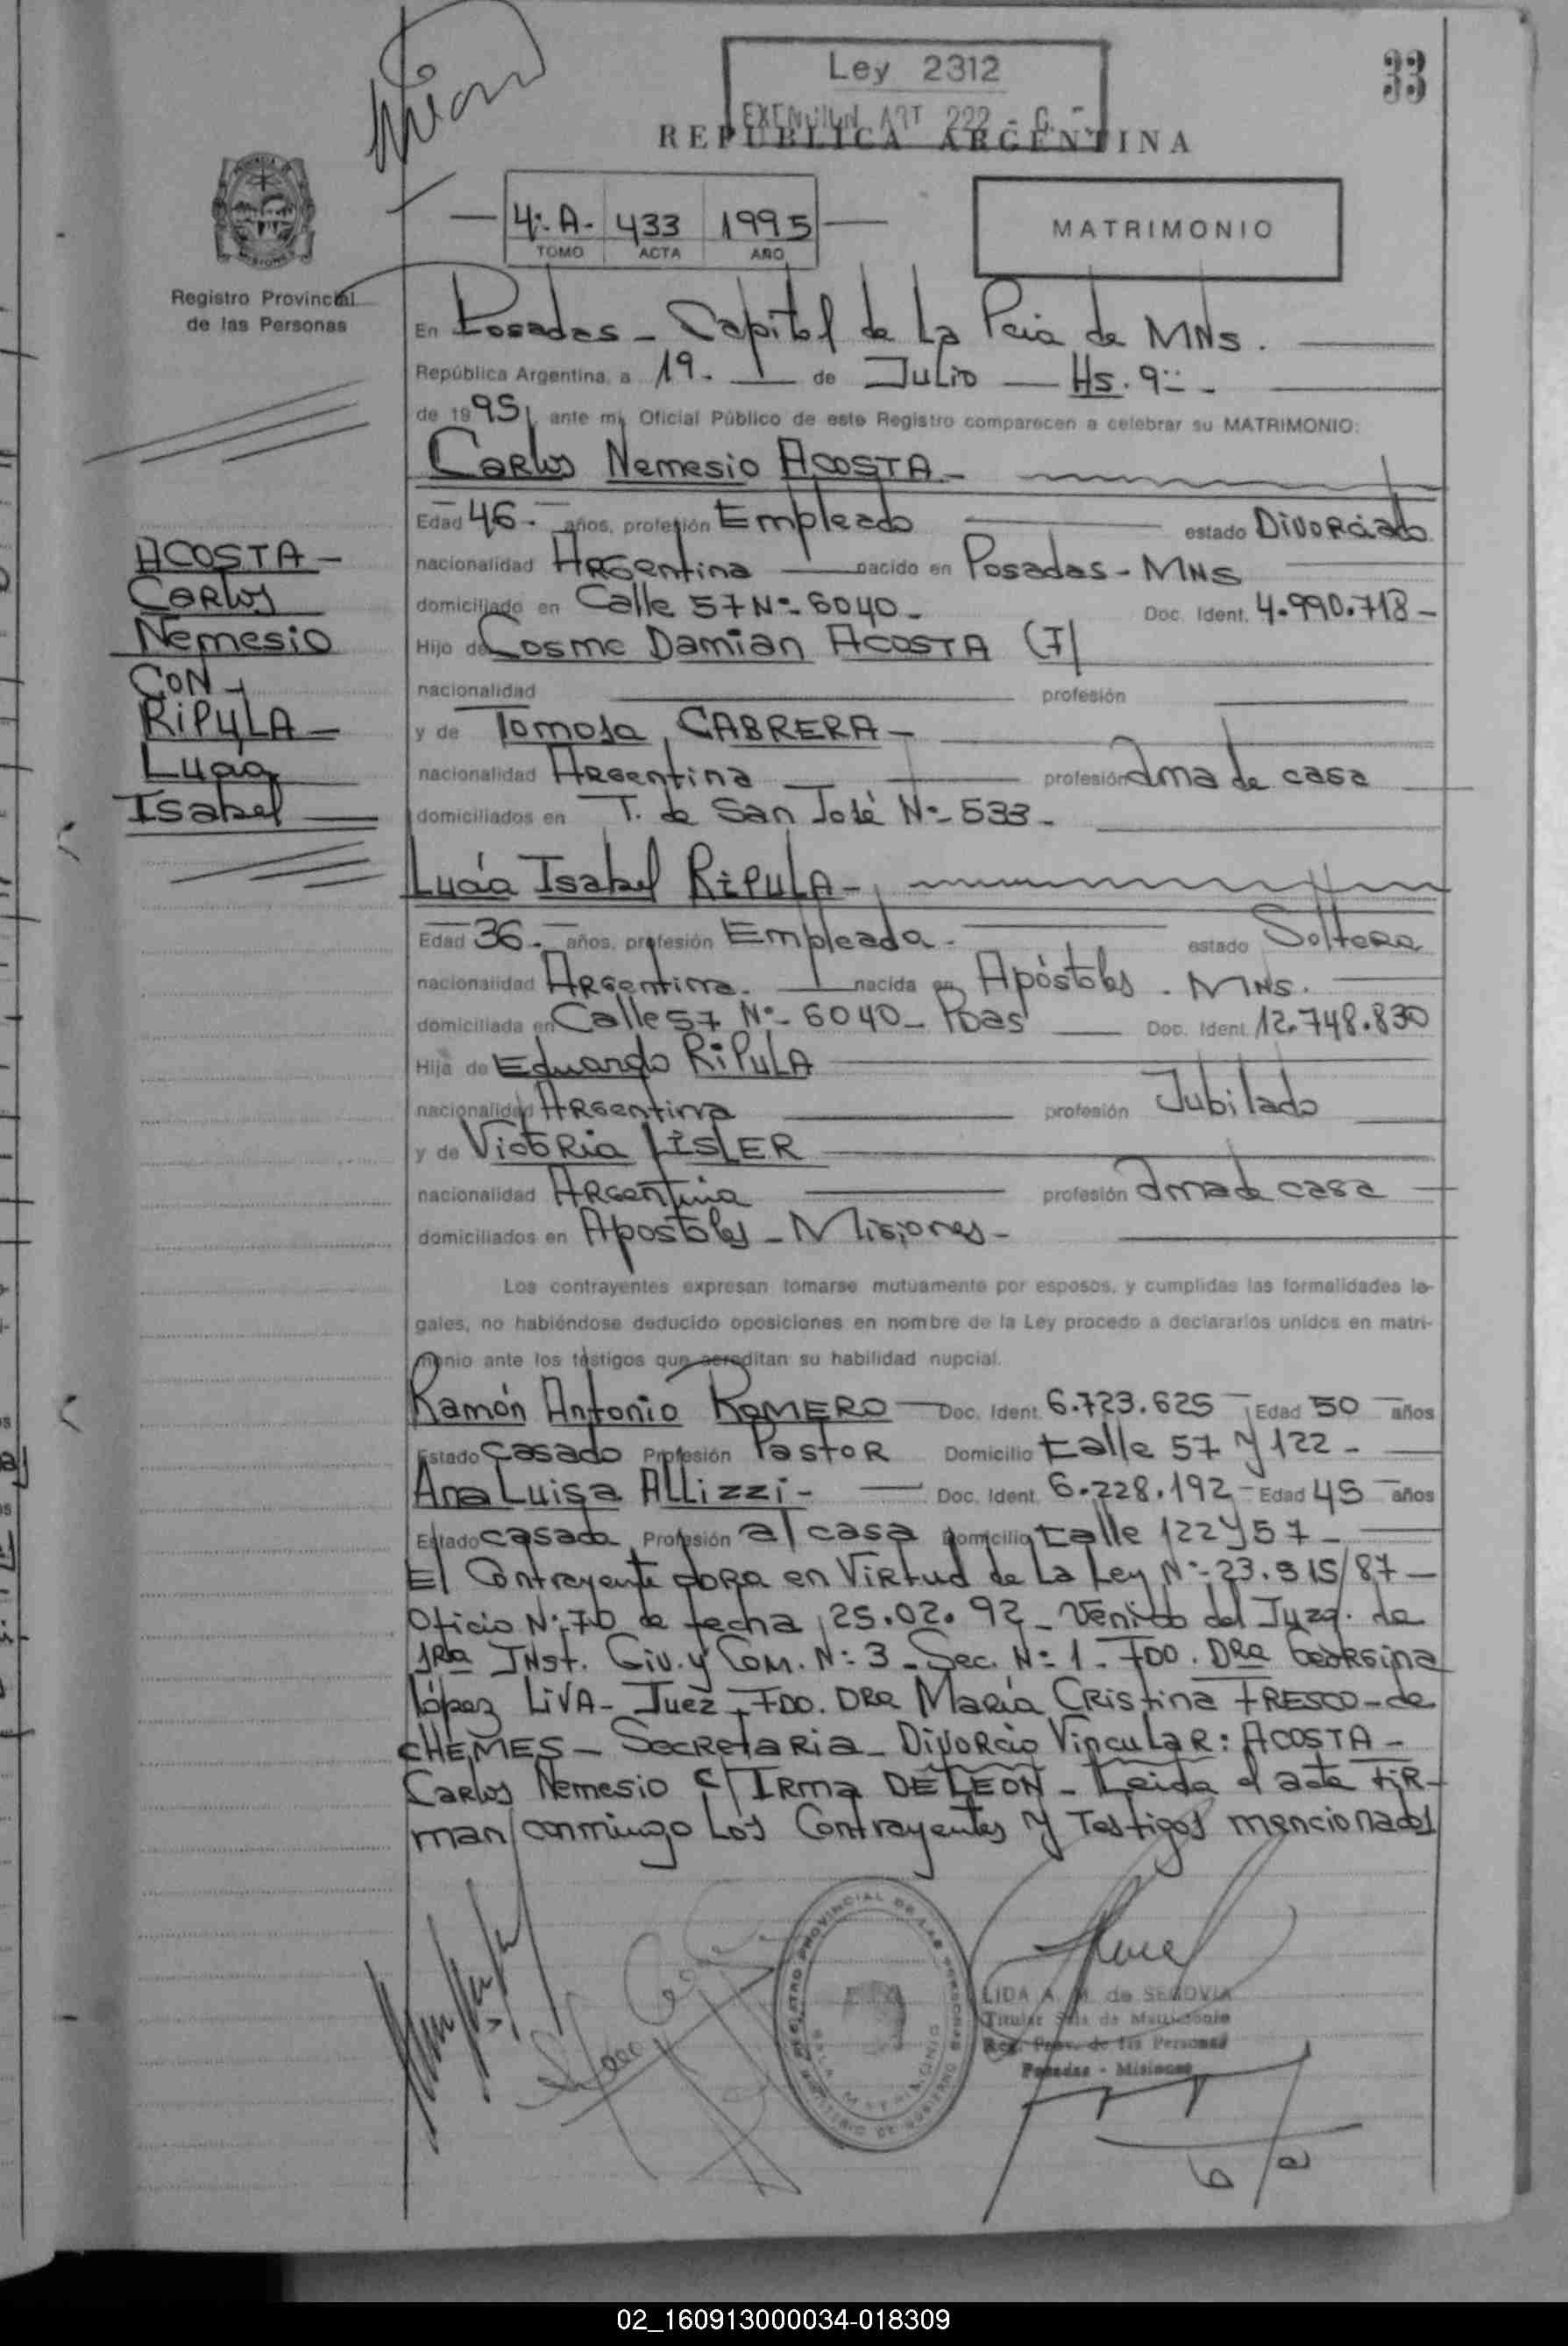 Ley 2312
EXENCION ART 222 - C. -
33
REPUBLICA ARGENTINA
4º- A- 433 1995
TOMO ACTA AÑO
MATRIMONIO
Registro Provincial
de las Personas
En Posadas - Capital de La Pcia de MNs.
República Argentina, a 19 - de Julio Hs. 9
de 1995, ante mi, Oficial Público de este Registro comparecen a celebrar su MATRIMONIO:
Carlos Nemesio ACOSTA -
Edad 46 - años, profesión Empleado estado Divorciado
nacionalidad Argentina nacido en Posadas - MNS
domiciliado en Calle 57 Nº- 6040 - Doc. Ident. 4.990.718 -
Hijo de Cosme Damian ACOSTA (F)
nacionalidad profesión
y de Tomasa CABRERA -
nacionalidad Argentina profesión ama de casa
domiciliados en T. de San José Nº- 533 -
ACOSTA -
Carlos
Nemesio
CON -
RIPULA -
Lucia
Isabel
Lucía Isabel RIPULA -
Edad 36 - años, profesión Empleada - estado Soltera
nacionalidad Argentina. nacida en Apóstoles - MNS.
domiciliada en Calle 57 Nº- 6040 - Pdas Doc. Ident. 12.748.830
Hija de Eduardo RIPULA
nacionalidad Argentina profesión Jubilado
y de Victoria LISLER
nacionalidad Argentina profesión ama de casa
domiciliados en Apostoles - Misiones -
Los contrayentes expresan tomarse mutuamente por esposos, y cumplidas las formalidades le-
gales, no habiéndose deducido oposiciones en nombre de la Ley procedo a declararlos unidos en matri-
monio ante los testigos que acreditan su habilidad nupcial.
Ramón Antonio ROMERO Doc. Ident. 6.723.625 - Edad 50 años
Estado casado Profesión Pastor Domicilio calle 57 y 122 -
Ana Luisa ALLizzi - Doc. Ident. 6.228.192 - Edad 45 años
Estado casada Profesión a/ casa Domicilio calle 122 y 57 -
El Contrayente obra en Virtud de La Ley Nº- 23.515/87 -
Oficio Nº: 70 de fecha 25.02.92 - Venido del Juzg. de
1Ra INst. Civ. y Com. N: 3 - Sec. Nº 1 - FDO. DRa Georgina
López LIVA - Juez - FDO. DRa María Cristina FRESCO - de
CHEMES - Secretaria - Divorcio Vincular: ACOSTA -
Carlos Nemesio c/ Irma DE LEON - Leida el acta fir-
man conmigo Los Contrayentes y Testigos mencionados
REGISTRO PROVINCIAL DE LAS PERSONAS
SALA MATRIMONIO
MINISTERIO DE GOBIERNO
LIDA A. M. de SEGOVIA
Titular Sala de Matrimonio
Reg. Prov. de las Personas
Posadas - Misiones
02_160913000034-018309